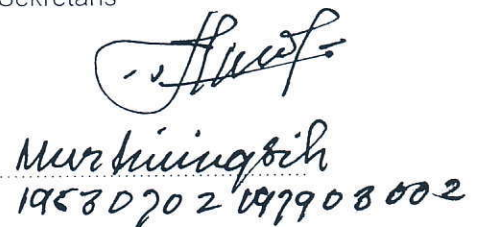 Sekretaris
Murtiningsih
19530702 197903 002